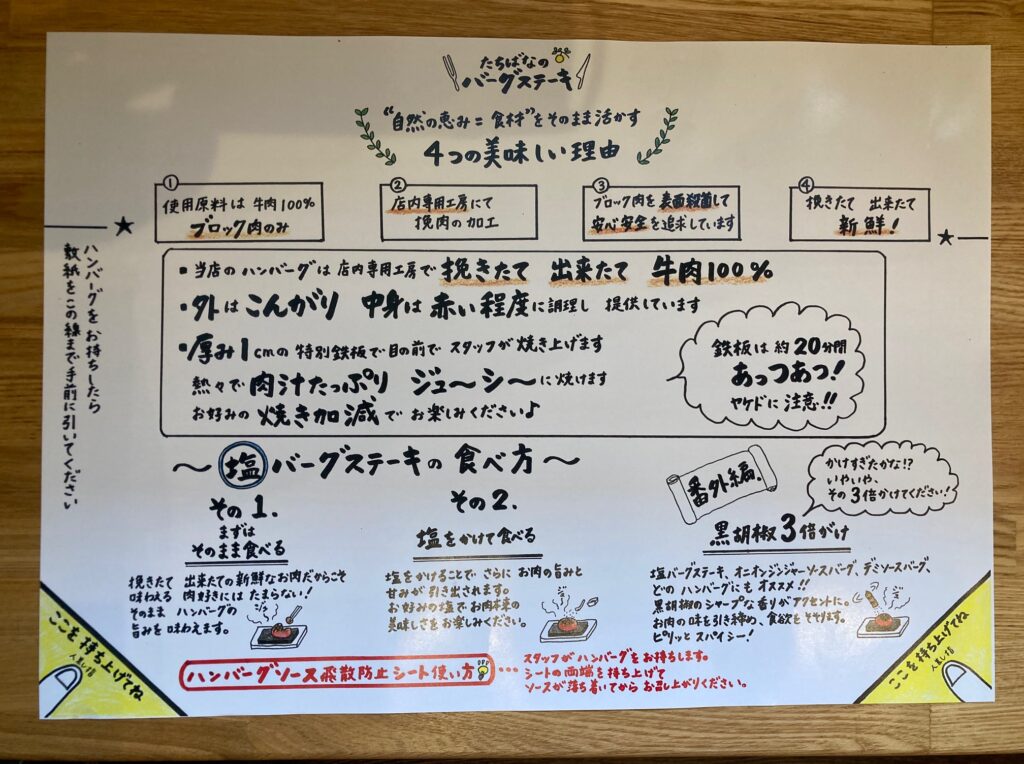 たちばなの
バーグステーキ
"自然の恵み=食材"をそのまま活かす
4つの美味しい理由
①
使用原料は 牛肉100%
ブロック肉のみ
②
店内専用工房にて
挽肉の加工
③
ブロック肉を表面殺菌して
安心安全を追求しています
④
挽きたて 出来たて
新鮮!
★
★
ハンバーグをお持ちしたら
敷紙をこの線まで手前に引いてください
・当店の ハンバーグは 店内専用工房で 挽きたて 出来たて 牛肉100%
・外は こんがり 中身は 赤い程度に調理し 提供しています
・厚み1cmの 特別鉄板で目の前で スタッフが 焼き上げます
熱々で 肉汁たっぷり ジュ〜シ〜に焼けます
お好みの 焼き加減で お楽しみください♪
鉄板は 約20分間
あっつあつ!
ヤケドに注意!!
〜塩バーグステーキの 食べ方〜
その1.
まずは
そのまま食べる
挽きたて 出来たての新鮮なお肉だからこそ
味わえる 肉好きには たまらない!
そのまま ハンバーグの
旨みを味わえます。
その2.
塩をかけて食べる
塩をかけることで さらに お肉の旨みと
甘みが 引き出されます。
お好みの塩で お肉本来の
美味しさを お楽しみください。
番外編.
かけすぎたかな!?
いやいや、
その3倍かけてください!
黒胡椒3倍がけ
塩バーグステーキ、オニオンジンジャーソースバーグ、デミソースバーグ、
どの ハンバーグにも オススメ!!
黒胡椒の シャープな香りがアクセントに。
お肉の 味を引き締め、食欲を そそります。
ピリッと スパイシー!
ここを持ち上げてね
人差し指
ここを持ち上げてね
人差し指
ハンバーグソース飛散防止シート使い方
・・・・スタッフが ハンバーグを お持ちします。
シートの両端を持ち上げて
ソースが落ち着いてから お召し上がりください。